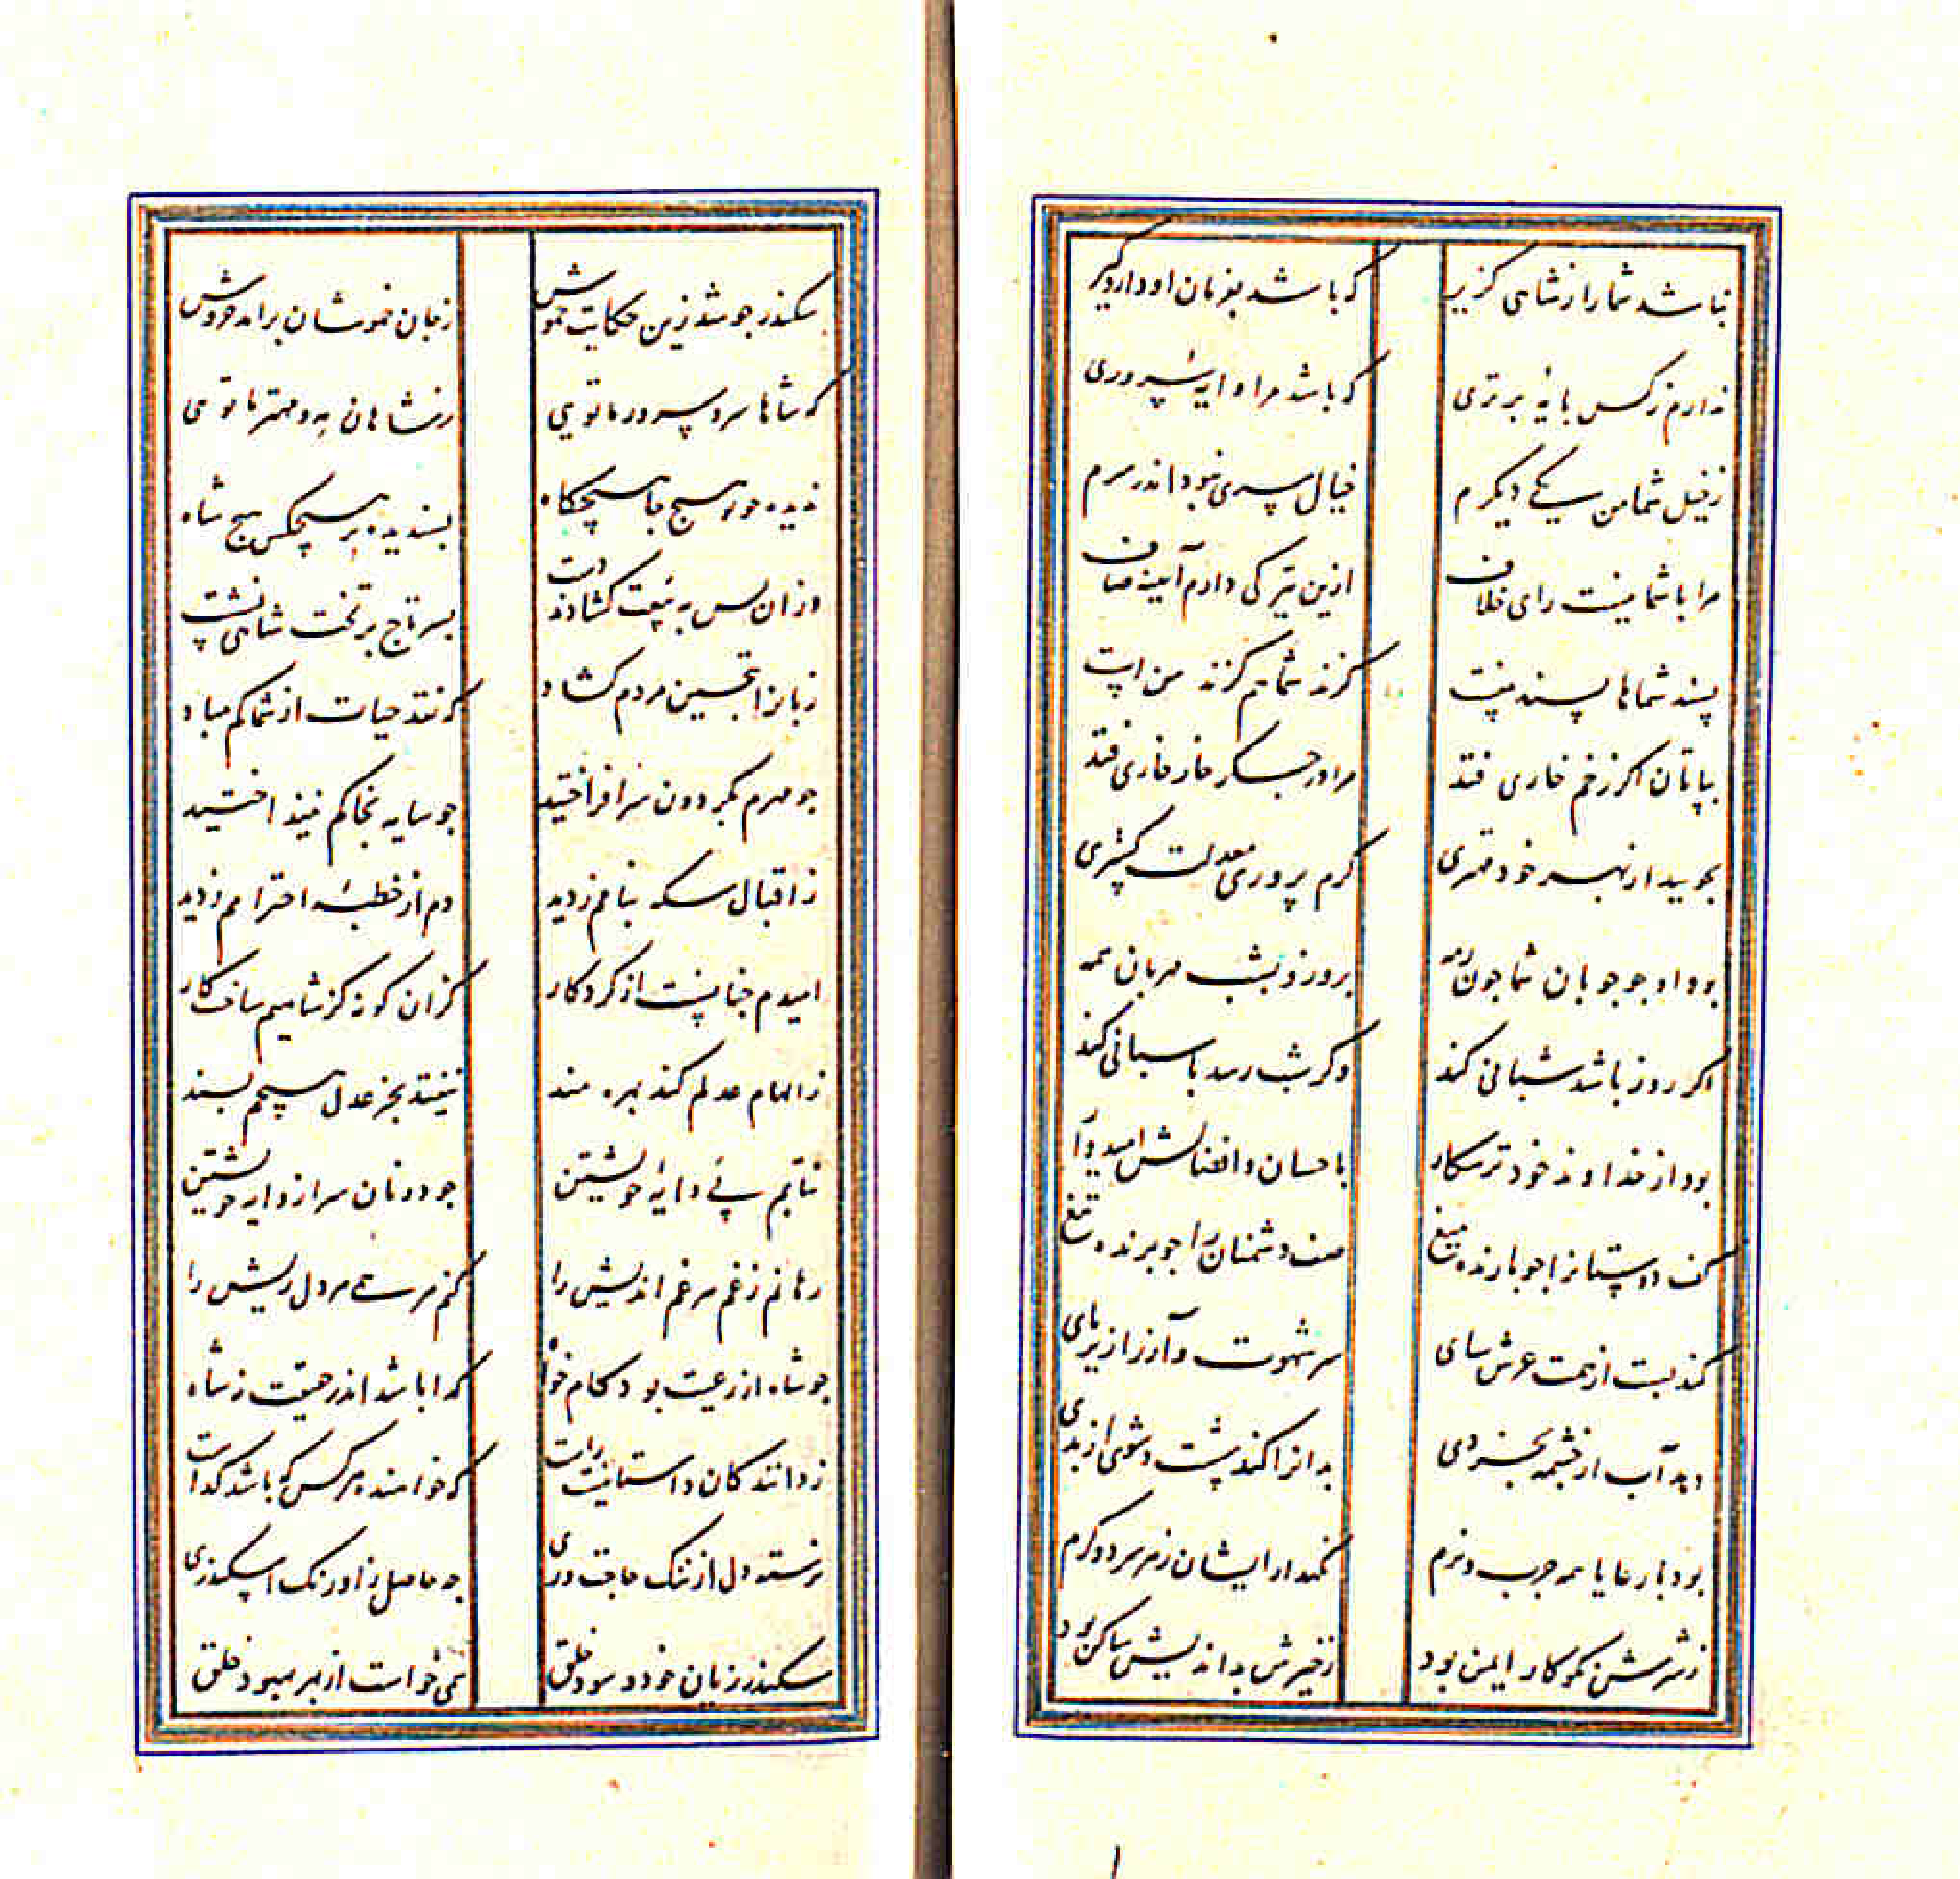 نباشد شما را ز شاهی گزیر که باشد بفرمان او دار و گیر
ندارم ز کس پایهٔ برتری که باشد مرا دایهٔ سروری
ز خیل شما من یکی دیگرم خیال سری نبود اندر سرم
مرا با شما نیست رای خلاف ازین تیرکی دارم آیینه صاف
پسند شماها پسند منست گزند شما هم گزند من است
بپاتان اگر زخم خاری فتد مرا در جگر خار خاری فتد
بجویید از بهر خود مهتری کرم پروری معدلت گستری
بود او جو جوپان شما جون رمه بروز و بشب مهربان همه
اکر روز باشد شبانی کند وکر شب رسد پاسبانی کند
بود از خداوند خود ترسکار باحسان و افضالش امیدوار
کف دوستانرا جو بارنده میغ صف دشمنان را جو برنده تیغ
کند پست از همت عرش سای سر شهوت و آز را زیر پای
دهد آب از چشمه بخردی بدانرا کند شست و شوی از بدی
بود با رعایا همه چرب و نرم نکهدار ایشان ز هر سرد و کرم
ز شرش نکوکار ایمن بود ز خیرش بداندیش ساکن بود
سکندر جو شد زین حکایت خموش ز جان خموشان برآمد خروش
که شاها سر و سرور ما تویی ز شاهان به و مهتر ما تویی
ندیده جو تو هیچ جا هیچگاه پسندیده بر هیچکس هیچ شاه
وزان پس به بیعت کشادند دست بسر تاج بر تخت شاهی نشست
زبانرا بتحسین مردم کشاد که نقد حیات از شما کم مباد
جو مهرم بکردون سر افراختید جو سایه بخاکم نینداختید
ز اقبال سکه بنامم زدید دم از خطبهٔ احترامم زدید
امیدم جنانست از کردکار کزان کونه کز شاهیم ساخت کار
ز الهام عدلم کند بهره مند نیفتد بجز عدل هیچم پسند
نتابم پی دایهٔ خویشتن جو دونان سر از دایه خویشتن
رهانم ز غم هر غم اندیش را کنم مرهمی هر دل ریش را
جو شاه از رعیت بود کام خواه کدا باشد اندر حقیقت نه شاه
ز دانندکان داستانیست راست که خواهنده هر کس که باشد کداست
نرسته دل از ننک حاجت وری جه حاصل ز اورنک اسکندری
سکندر زیان خود و سود خلق همی خواست از بهر بهبود خلق